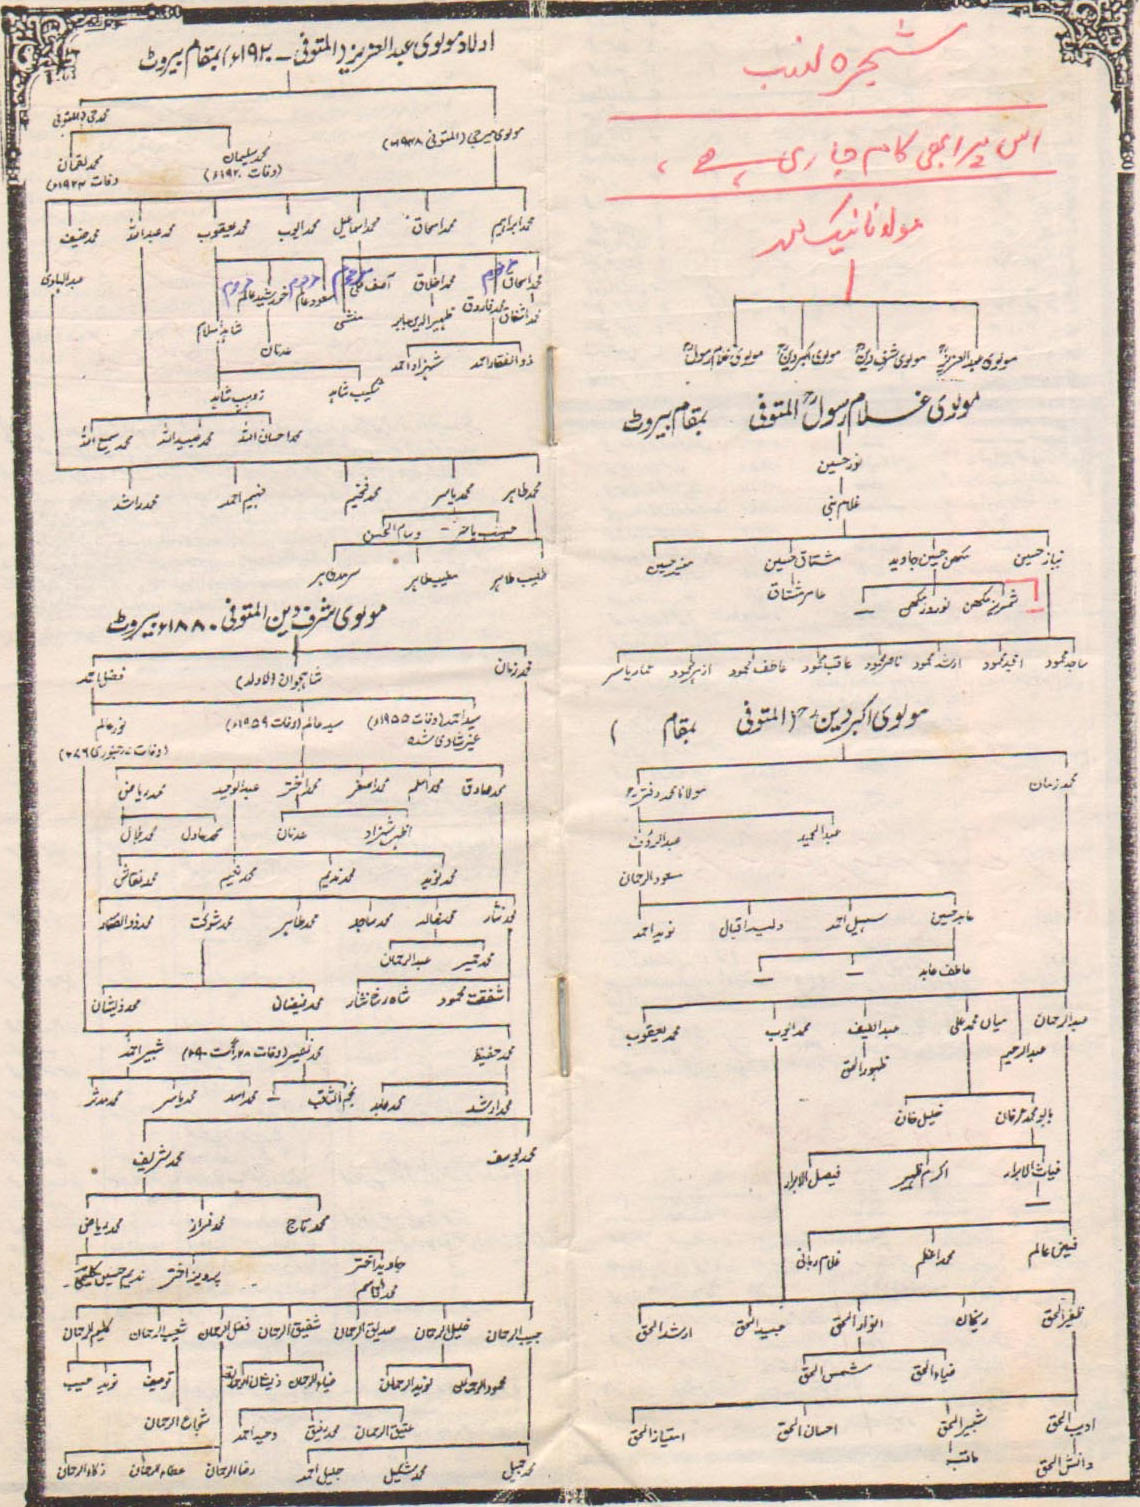 شجرہ نسب
اس پر ابھی کام جاری ہے،
مولانا نیک محمد
مولوی عبدالعزیزؒ مولوی شرف دینؒ مولوی اکبر دینؒ مولوی غلام رسولؒ
مولوی غلام رسولؒ المتوفی بمقام بیروٹ
نور حسین
غلام نبی
نیاز حسین مکھن حسین جاوید مشتاق حسین منیر حسین
شمریز مکھن نوروز مکھن — عامر مشتاق
ساجد محمود امجد محمود ارشد محمود ناصر محمود عاقب محمود عاطف محمود ازہر محمود عمار یاسر
مولوی اکبر دینؒ (المتوفی بمقام )
محمد زمان مولانا محمد دفترؒ
عبدالمجید عبدالرؤف
سعود الرحمان
عابد حسین سہیل احمد ولید اقبال نوید احمد
عاطف عابد — —
عبدالرحمان میاں محمد علی عبداللطیف محمد ایوب محمد یعقوب
عبدالرحیم ظہور الحق
بابو محمد عرفان خلیل خان
غیاث الابرار اکرم ظہیر فیصل الابرار
—
فیض عالم محمد اعظم غلام ربانی
ظفیر الحق ریحان انوار الحق عبید الحق ارشد الحق
ضیاء الحق شمس الحق
ادیب الحق شبیر الحق احسان الحق امتیاز الحق
دانش الحق عاتب
اولاد مولوی عبدالعزیز (المتوفی – ۱۹۲۰ء) بمقام بیروٹ
مولوی میر جی (المتوفی ۱۹۳۸ء) محمد جی (المتوفی
محمد سلیمان محمد لقمان
(وفات ۱۹۲۰ء) وفات ۱۹۲۳ء)
محمد ابراہیم محمد اسحاق محمد اسماعیل محمد ایوب محمد یعقوب محمد عبداللہ محمد حنیف
محمد اسحاق مرحوم محمد اخلاق آصف علی مرحوم سعود عالم مرحوم خورشید عالم مرحوم عبدالہادی
محمد اشفاق محمد فاروق ظہیر الدین بابر منشی شاہد اسلام
عدنان
ذوالفقار احمد شہزاد احمد
شکیب شاہد زوہیب شاہد
محمد احسان اللہ محمد عبیداللہ محمد سمیع اللہ
محمد طاہر محمد یاسر محمد فخیم فہیم احمد محمد راشد
حسیب یاسر – وسام الحسن
طیب طاہر مطیب طاہر سرمد طاہر
مولوی شرف دین المتوفی ۱۸۸۰ء بیروٹ
محمد زمان شاہجہان (لاولد) فضل احمد
سید احمد (وفات ۱۹۵۵ء) سید عالم (وفات ۱۹۵۹ء) نور عالم
غیر شادی شدہ
محمد صادق محمد اسلم محمد اصغر محمد اختر عبدالوحید محمد ریاض
اظہر شہزاد عدنان محمد عادل محمد بلال
محمد نوید محمد ندیم محمد نعیم محمد نقاش
محمد نثار محمد خالد محمد ساجد محمد طاہر محمد شوکت محمد ذوالفقار
محمد عمیر عبدالرحمان
شفقت محمود شاہ رخ نثار محمد فیضان محمد ذیشان
محمد حفیظ محمد نصیر (وفات ۲۸ اگست ۲۰۰۹ء) شبیر احمد
محمد ارشد محمد عابد نجم الثاقب — محمد اسد محمد یاسر محمد مدثر
محمد یوسف محمد شریف
محمد تاج محمد فراز محمد ریاض
جاوید اختر پرویز اختر ندیم حسین
محمد قاسم
حبیب الرحمان خلیل الرحمان صدیق الرحمان شفیق الرحمان فضل الرحمان شعیب الرحمان کلیم الرحمان
محمود الرحمان نوید الرحمان ضیاء الرحمان ذیشان الرحمان توصیف نوید حبیب
عتیق الرحمان محمد رفیق وحید احمد شجاع الرحمان
محمد جمیل محمد شکیل جلیل احمد رضا الرحمان عطاء الرحمان ذکاء الرحمان